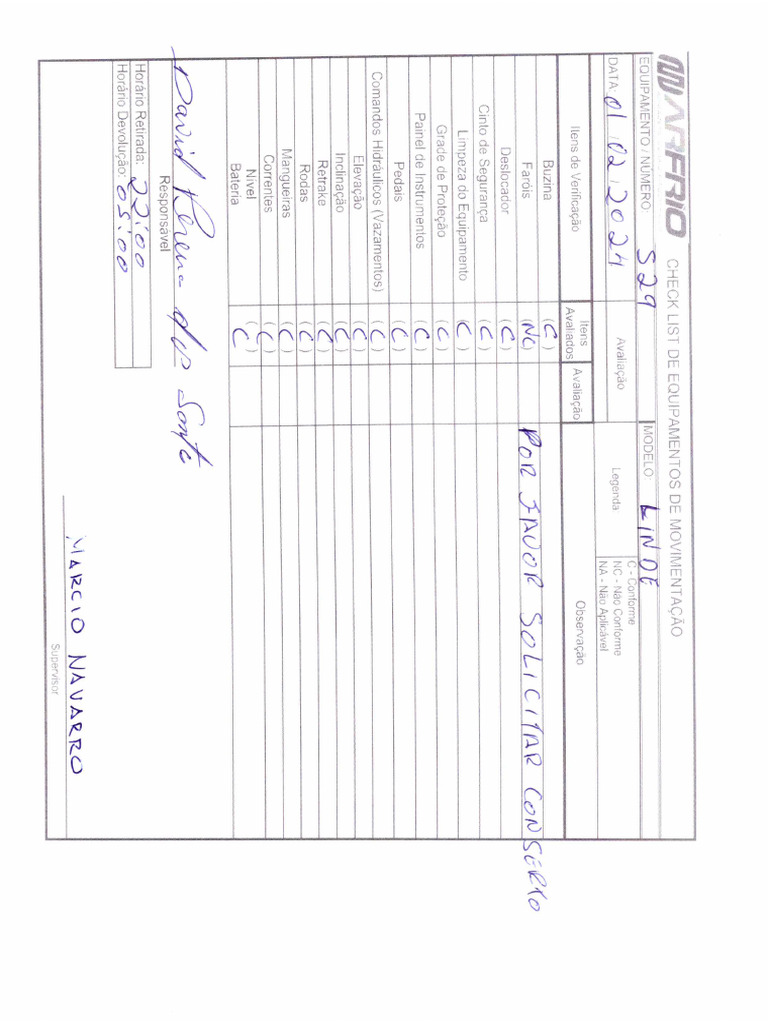 ARFRIO
CHECK LIST DE EQUIPAMENTOS DE MOVIMENTAÇÃO
EQUIPAMENTO / NÚMERO S29 MODELO: LINDE
DATA: 01 02 2024 Avaliação Legenda:
C - Conforme
NC - Não Conforme
NA - Não Aplicável
Itens de Verificação Itens Avaliados Avaliação Observação
Buzina (C)
Faróis (NC) POR FAVOR SOLICITAR CONSERTO
Deslocador (C)
Cinto de Segurança (C)
Limpeza do Equipamento (C)
Grade de Proteção (C)
Painel de Instrumentos (C)
Pedais (C)
Comandos Hidráulicos (Vazamentos) (C)
Elevação (C)
Inclinação (C)
Retrake (C)
Rodas (C)
Mangueiras (C)
Correntes (C)
Nível ( )
Bateria C
David
Responsável
Horário Retirada: 22:00
Horário Devolução: 05:00
MARCIO NAVARRO
Supervisor